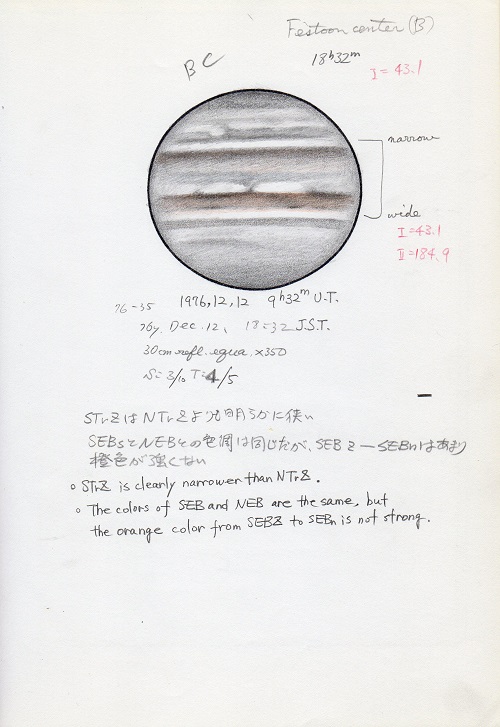 Festoon center (B)
BC
18h32m
I = 43.1
narrow
wide
I = 43.1
II = 184.9
76-35 1976, 12, 12 9h32m U.T.
76y. Dec. 12, 18:32 J.S.T.
30cm refl. equa. ×350
S=3/10 T=4/5
STrZはNTrZより明らかに狭い
SEBsとNEBとの色調は同じだが、SEBZ－SEBnはあまり
橙色が強くない
○ STrZ is clearly narrower than NTrZ.
○ The colors of SEB and NEB are the same, but
the orange color from SEBZ to SEBn is not strong.